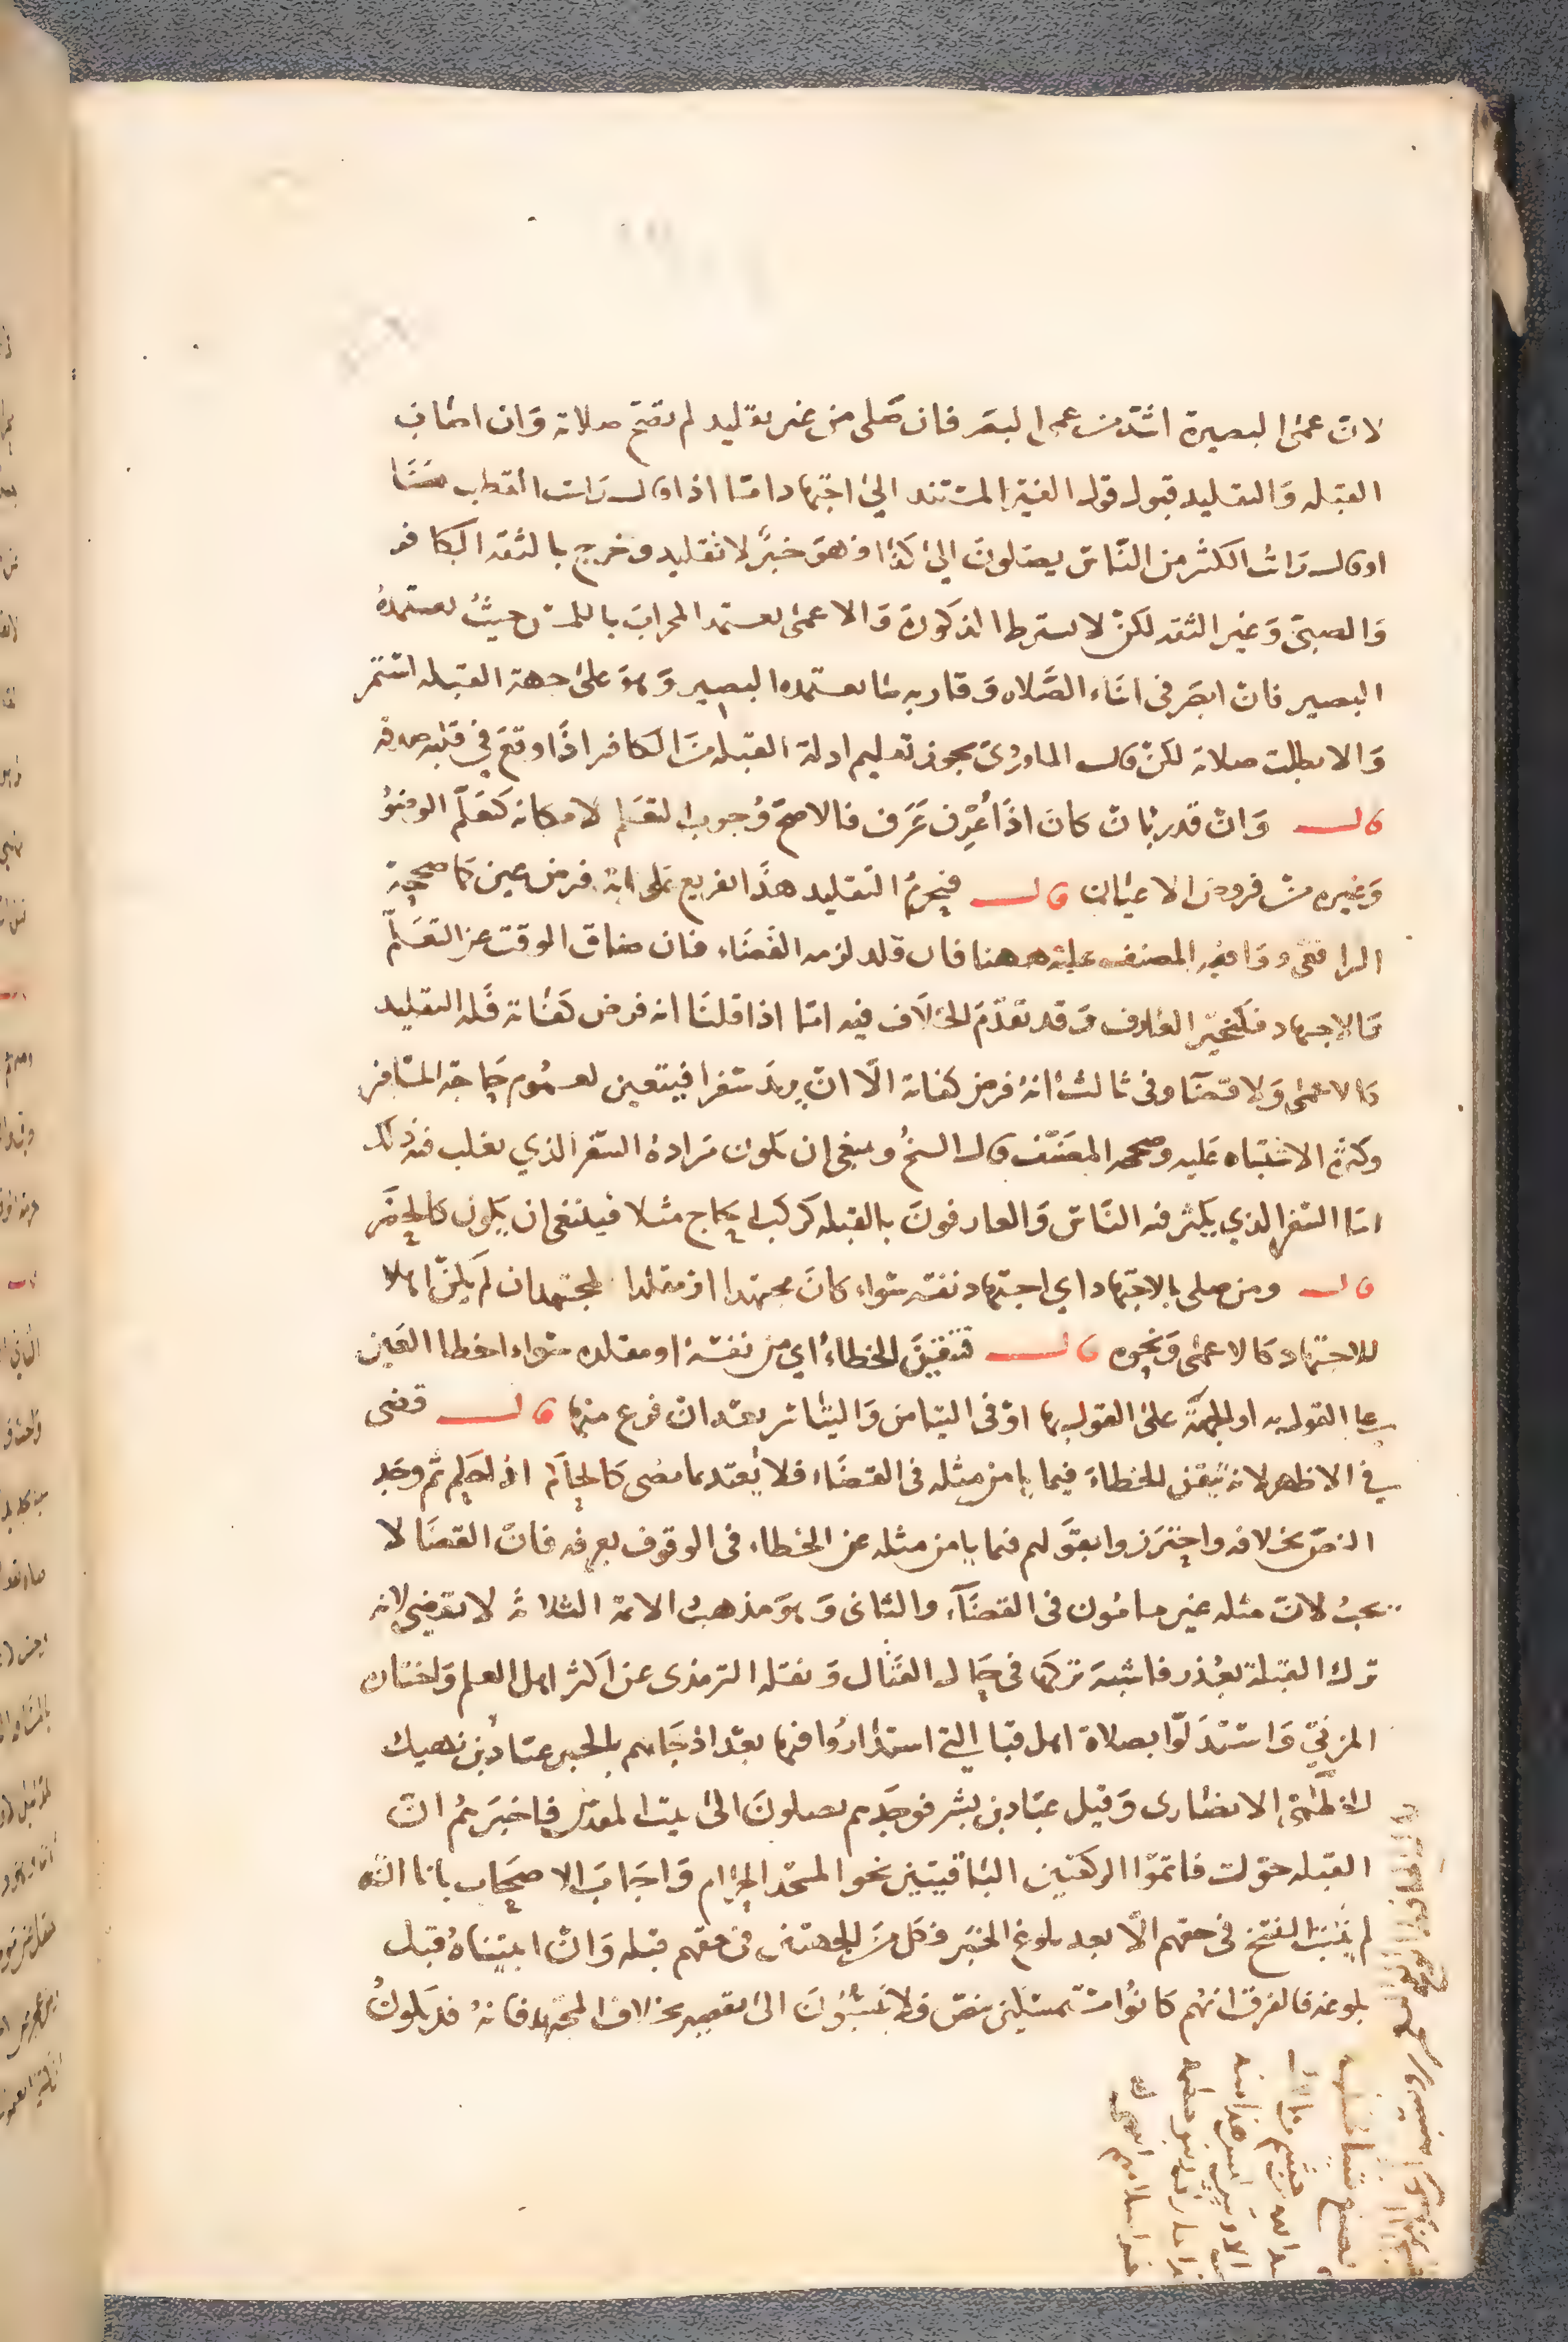 لان عمى البصيرة اشد من عمى البصر فان صلى من غير تقليد لم تصح صلاته وان اصاب
القبله والتقليد قبول قول الغير المستند الى اجتهاد اما اذا قال رايت القطب هنا
او قال رايت الكثير من الناس يصلون الى كذا فهو خبر لا تقليد وخرج بالثقه الكافر
والصبي وغير الثقه لكن لا يشترط الذكورة والاعمى يعتمد المحراب باللمس حيث يعتمده
البصير فان ابصر في اثناء الصلاه وقاربه ما يعتمده البصير وهو على جهة القبله استمر
والا بطلت صلاته لكن قال الماوردي يجوز تعليم ادلة القبله من الكافر اذا وقع في قلبه صدقه
قال وان قدر بان كان اذا عرف عرف فالاصح وجوب التعلم لامكانه كتعلم الوضوء
وغيره من فروض الاعيان قال فيحرم التقليد هذا تفريع على انه فرض عين كما صححه
الرافعي ووافقه المصنف عليه ههنا فان قلد لزمه القضاء فان ضاق الوقت عن التعلم
والاجتهاد فكتحير العارف وقد تقدم الخلاف فيه اما اذا قلنا انه فرض كفاية فله التقليد
كالاعمى ولا قضا وفي ثالث انه فرض كفاية الا ان يريد سفرا فيتعين لعموم حاجة المسافر
وكثرة الاشتباه عليه وصححه المصنف قال الشيخ وينبغي ان يكون مراده السفر الذي يغلب فيه ذلك
اما السفر الذي يكثر فيه الناس والعارفون بالقبله كركب الحاج مثلا فينبغي ان يكون كالحضر
قال ومن صلى بالاجتهاد اي اجتهاد نفسه سواء كان مجتهدا او مقلدا لمجتهد ان لم يكن اهلا
للاجتهاد كالاعمى ونحوه قال فتيقن الخطاء اي من نفسه او مقلده سواء اخطا العين
على القول به او الجهة على القول بها او في التيامن والتياسر بعد ان فرغ منها قال قضى
في الاظهر لانه تيقن الخطاء فيما يامن مثله في القضاء فلا يعتد بما مضى كالحاكم اذا حكم ثم وجد
النص بخلافه واحترزوا بقولهم فيما يامن مثله عن الخطاء في الوقوف بعرفه فان القضا لا
يجب لان مثله غير مامون في القضاء والثاني وهو مذهب الائمة الثلاثة لا يقضي لانه
ترك القبلة بعذر فاشبه تركها في حال القتال ونقله الترمذي عن اكثر اهل العلم واختاره
المزني واستدلوا بصلاة اهل قبا التي استداروا فيها بعد اذ جاهم بالخبر عباد بن نهيك
الخطمي الانصارى وقيل عباد بن بشر فوجدهم يصلون الى بيت المقدس فاخبرهم ان
القبله حولت فاتموا الركعتين الباقيتين نحو المسجد الحرام واجاب الاصحاب بانا ان
لم نثبت النسخ في حقهم الا بعد بلوغ الخبر فكل من الجهتين في حقهم قبله وان اثبتناه قبل
بلوغه فالفرق انهم كانوا متمسكين بنص فلا ينسبون الى تقصير بخلاف المجتهد فانه قد يكون